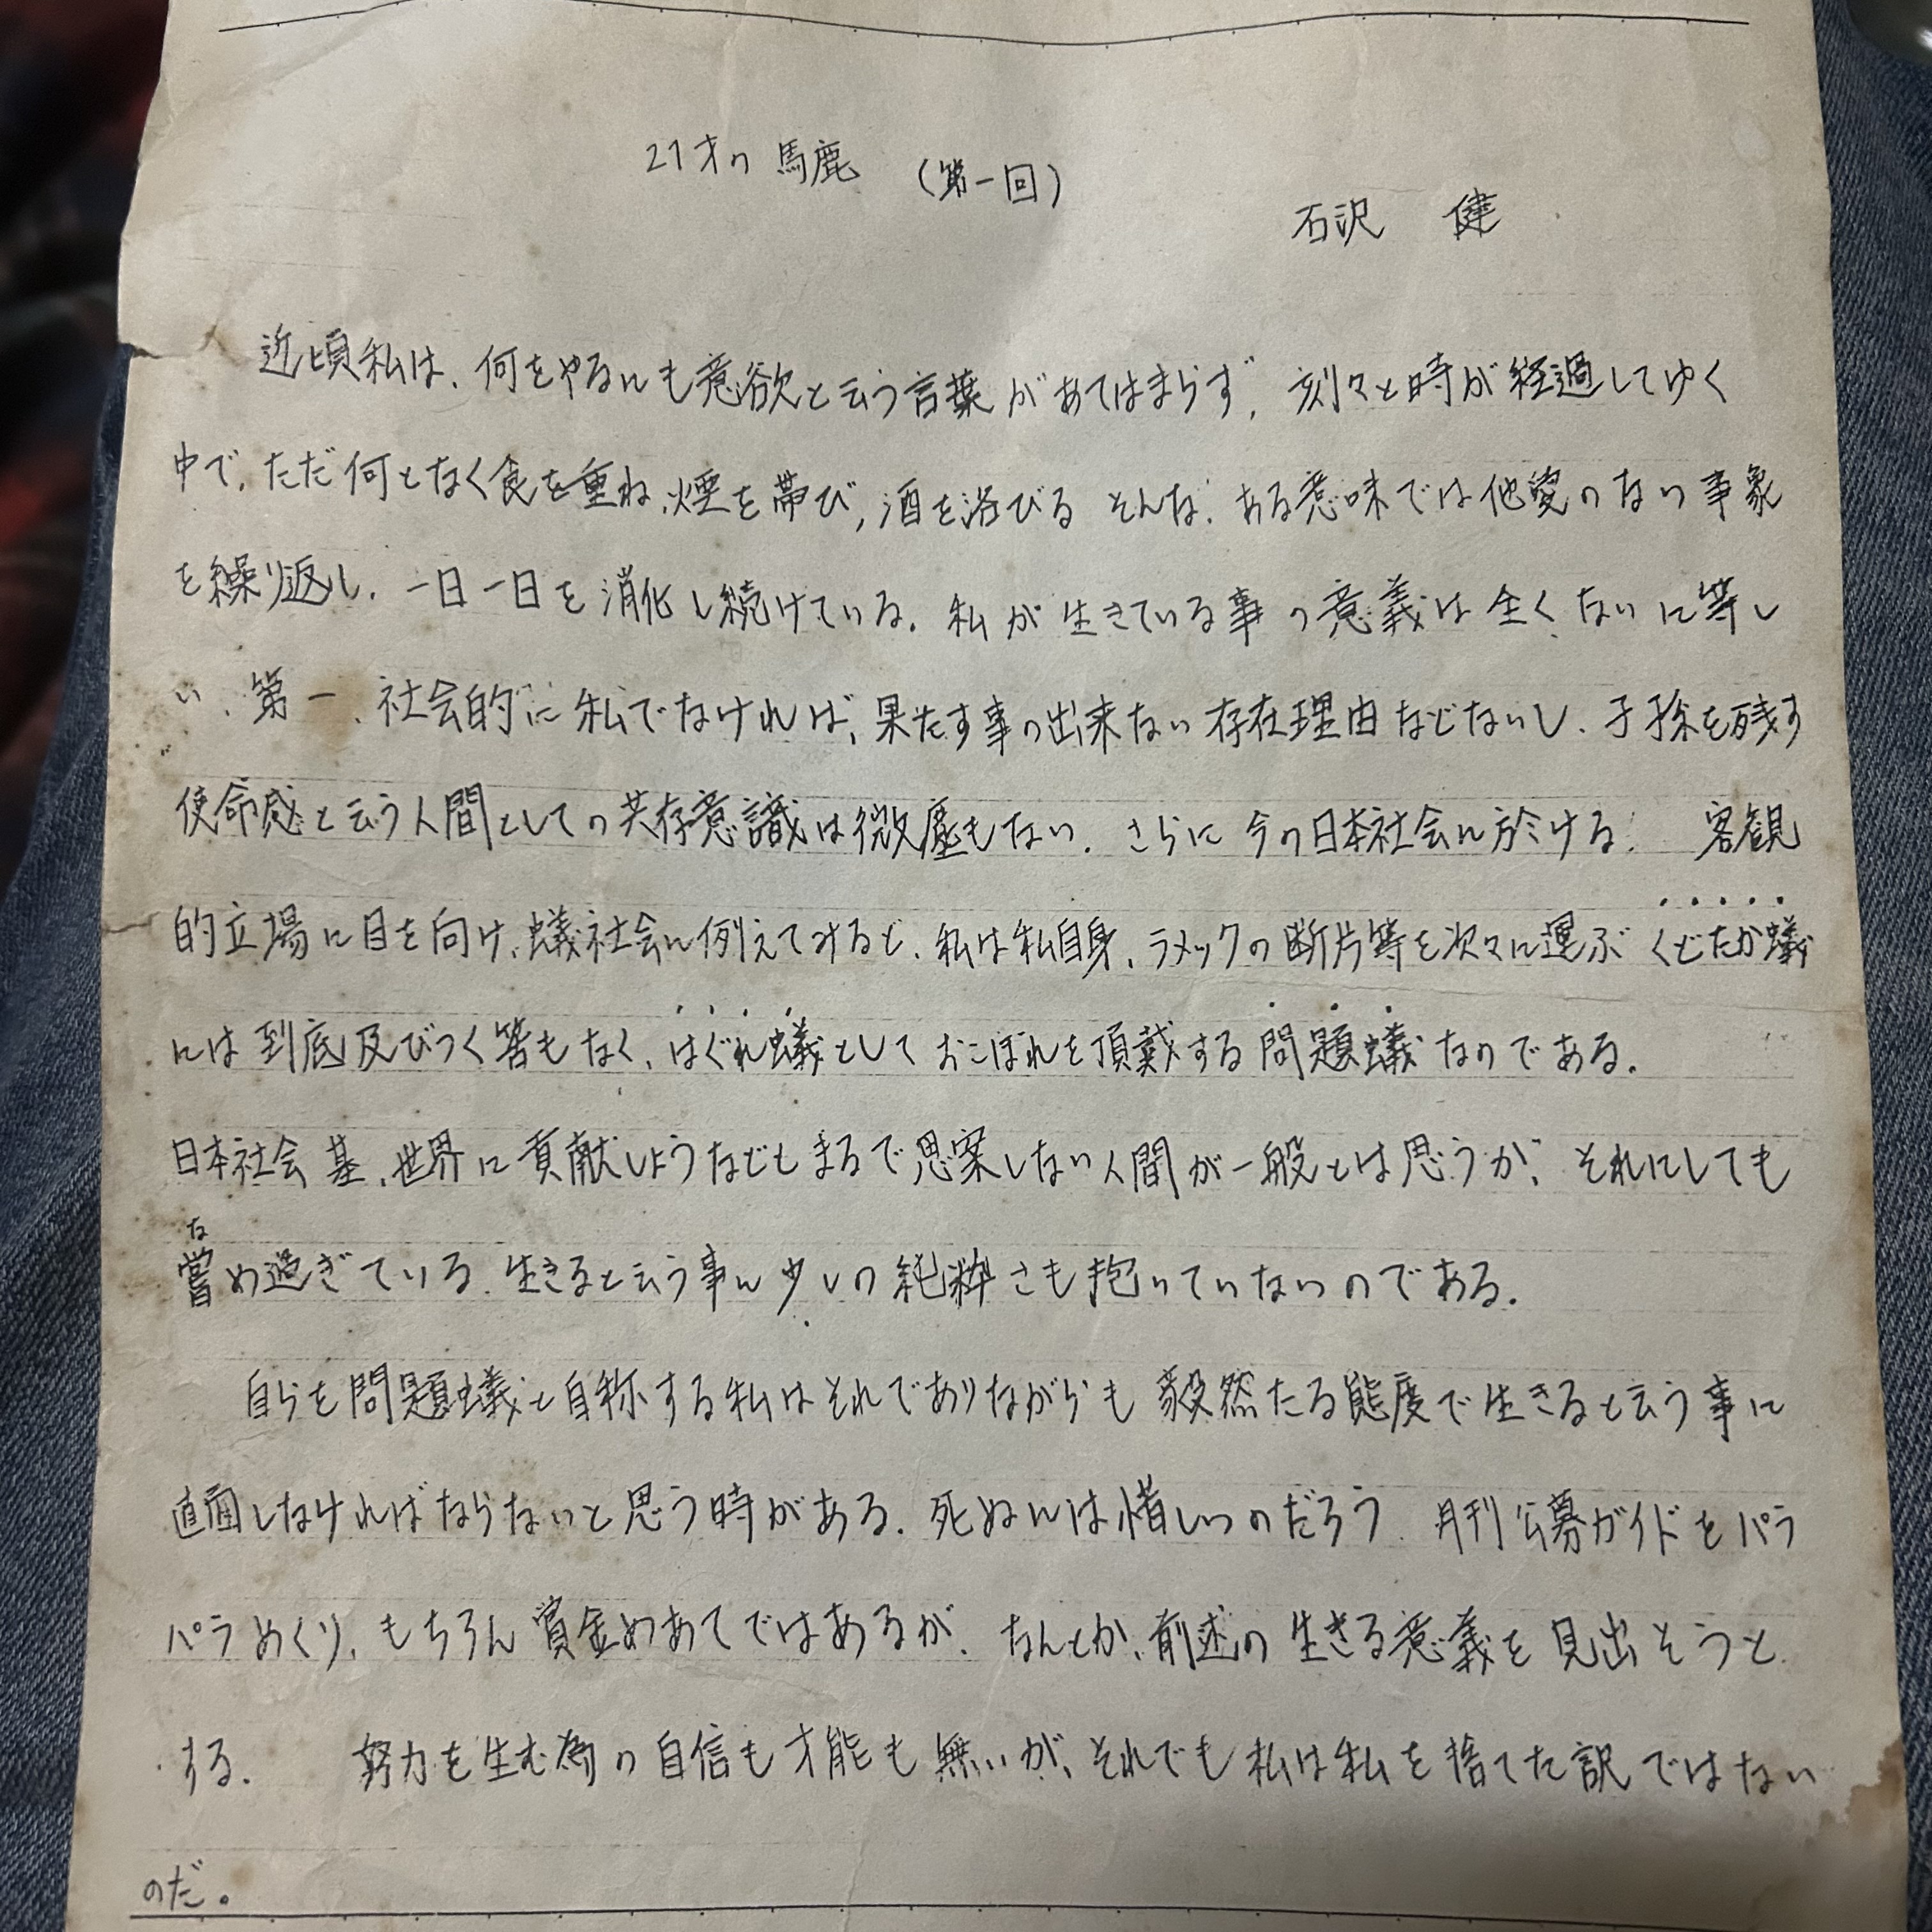 21才の馬鹿 (第一回)
石沢 健
近頃私は、何をやるにも意欲と云う言葉があてはまらず、刻々と時が経過してゆく
中で、ただ何となく食を重ね、煙を帯び、酒を浴びる そんな、ある意味では他愛のない事象
を繰り返し、一日一日を消化し続けている。私が生きている事の意義は全くないに等し
い、第一、社会的に私でなければ、果たす事の出来ない存在理由などないし、子孫を残す
使命感と云う人間としての共存意識は微塵もない。さらに今の日本社会に於ける、 客観
的立場に目を向け、蟻社会に例えてみると、私は私自身、ラメックの断片等を次々に運ぶ くどたか蟻
には到底及びつく筈もなく、はぐれ蟻としておこぼれを頂戴する問題蟻なのである。
日本社会 基、世界に貢献しようなどもまるで思案しない人間が一般とは思うが、それにしても
な
嘗め過ぎている。生きると云う事に少しの純粋さも抱いていないのである。
自らを問題蟻と自称する私はそれでありながらも 毅然たる態度で生きると云う事に
直面しなければならないと思う時がある。死ぬには惜しいのだろう 月刊公募ガイドをパラ
パラめくり、もちろん賞金めあてではあるが、なんとか、前述の生きる意義を見出そうと
する。 努力を生む為の自信も才能も無いが、それでも私は私を捨てた訳ではない
のだ。